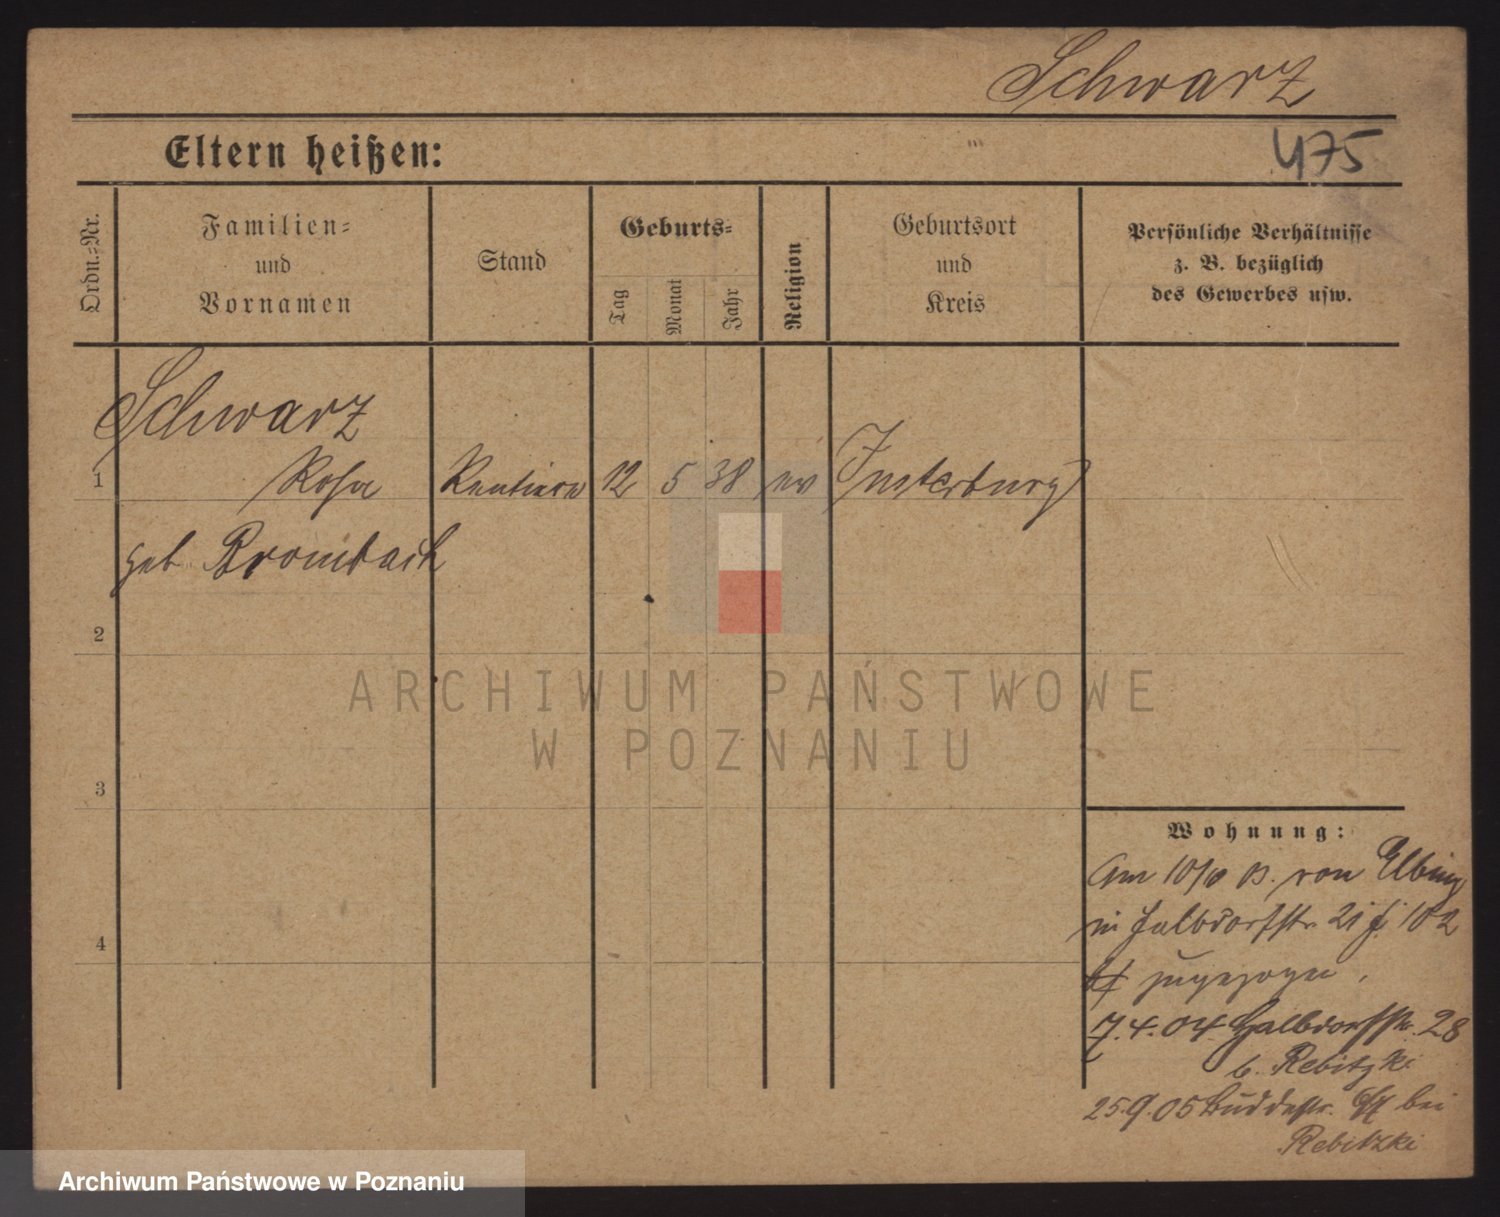 Schwarz
Eltern heißen:
475
Ordn.-Nr.
Familien-
und
Vornamen
Stand
Geburts-
Tag
Monat
Jahr
Religion
Geburtsort
und
Kreis
Persönliche Verhältnisse
z. B. bezüglich
des Gewerbes usw.
Schwarz
1 Rosa Rentiere 12 5 38 ev Insterburg
geb Brombach
2
3
4
Wohnung:
Am 10/ von Elbing
in Halbdorfstr 21 102
zugezogen.
7.4.04 Halbdorfstr. 28
b. Rebitzki
25.9.05 Buddestr. bei
Rebitzki
ARCHIWUM PAŃSTWOWE
W POZNANIU
Archiwum Państwowe w Poznaniu